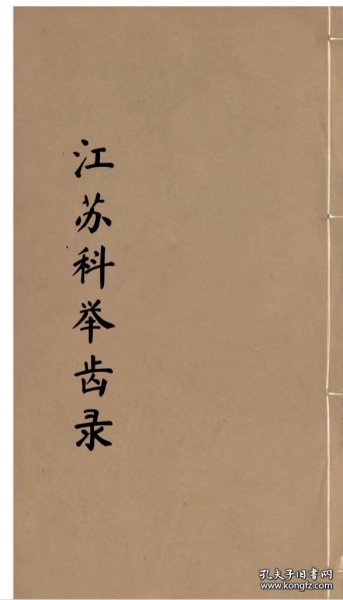 江苏科举齿录
孔夫子旧书网
www.kongfz.com